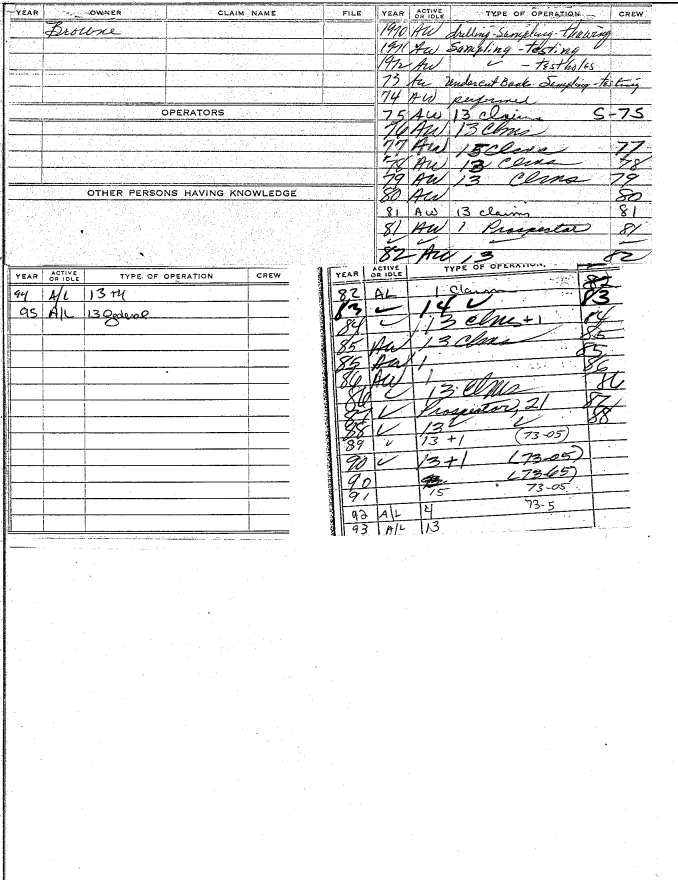 YEAR OWNER CLAIM NAME FILE
Browne
OPERATORS
OTHER PERSONS HAVING KNOWLEDGE
YEAR ACTIVE OR IDLE TYPE OF OPERATION CREW
1970 AW drilling-Sampling-thawing
1971 AW Sampling-testing
1972 AW ✓ - testholes
73 AW Undercut Banks-Sampling-testing
74 AW performed
75 AW 13 claims S-75
76 AW 13 Clms
77 AW 13 Clms 77
78 AW 13 Clms 78
79 AW 13 Clms 79
80 AW 80
81 AW 13 claims 81
81 AW 1 Prospector 81
✓ ✓ ✓ ✓
82 AW 13 82
YEAR ACTIVE OR IDLE TYPE OF OPERATION CREW
94 A/L 13 +4
95 A/L 13 federal
YEAR ACTIVE OR IDLE TYPE OF OPERATION
82 AL 1 82
83 ✓ 14 ✓ 83
84 ✓ 13 clms + 1 84
85 AW 13 Clms 85
85 AW 1 85
86 AW 1 86
86 ✓ 13 Clms 86
87 ✓ Prospector, 21 87
88 ✓ 13 ✓ ✓ 88
89 ✓ 13 +1 (73-05)
90 ✓ 13+1 (73-05)
90 (73-65)
91 15 73-05
92 A/L 4 73-5
93 A/L 13